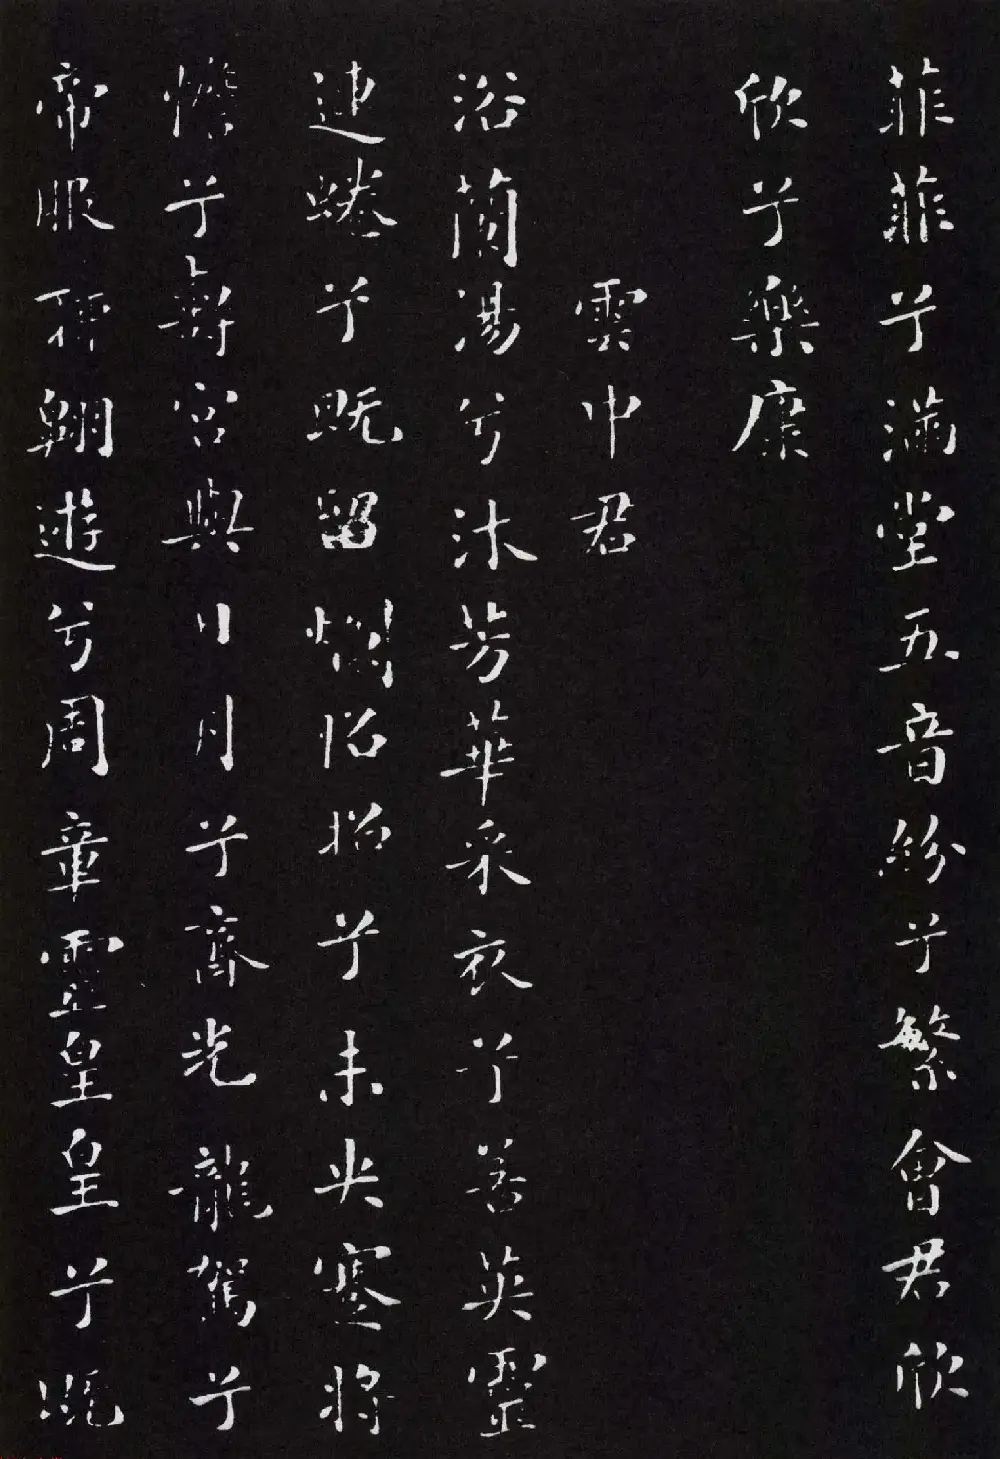 菲菲兮滿堂五音紛兮繁會君欣
欣兮樂康
雲中君
浴蘭湯兮沐芳華采衣兮若英靈
連蜷兮既留爛昭昭兮未央蹇將
憺兮壽宮與日月兮齊光龍駕兮
帝服聊翱遊兮周章靈皇皇兮既